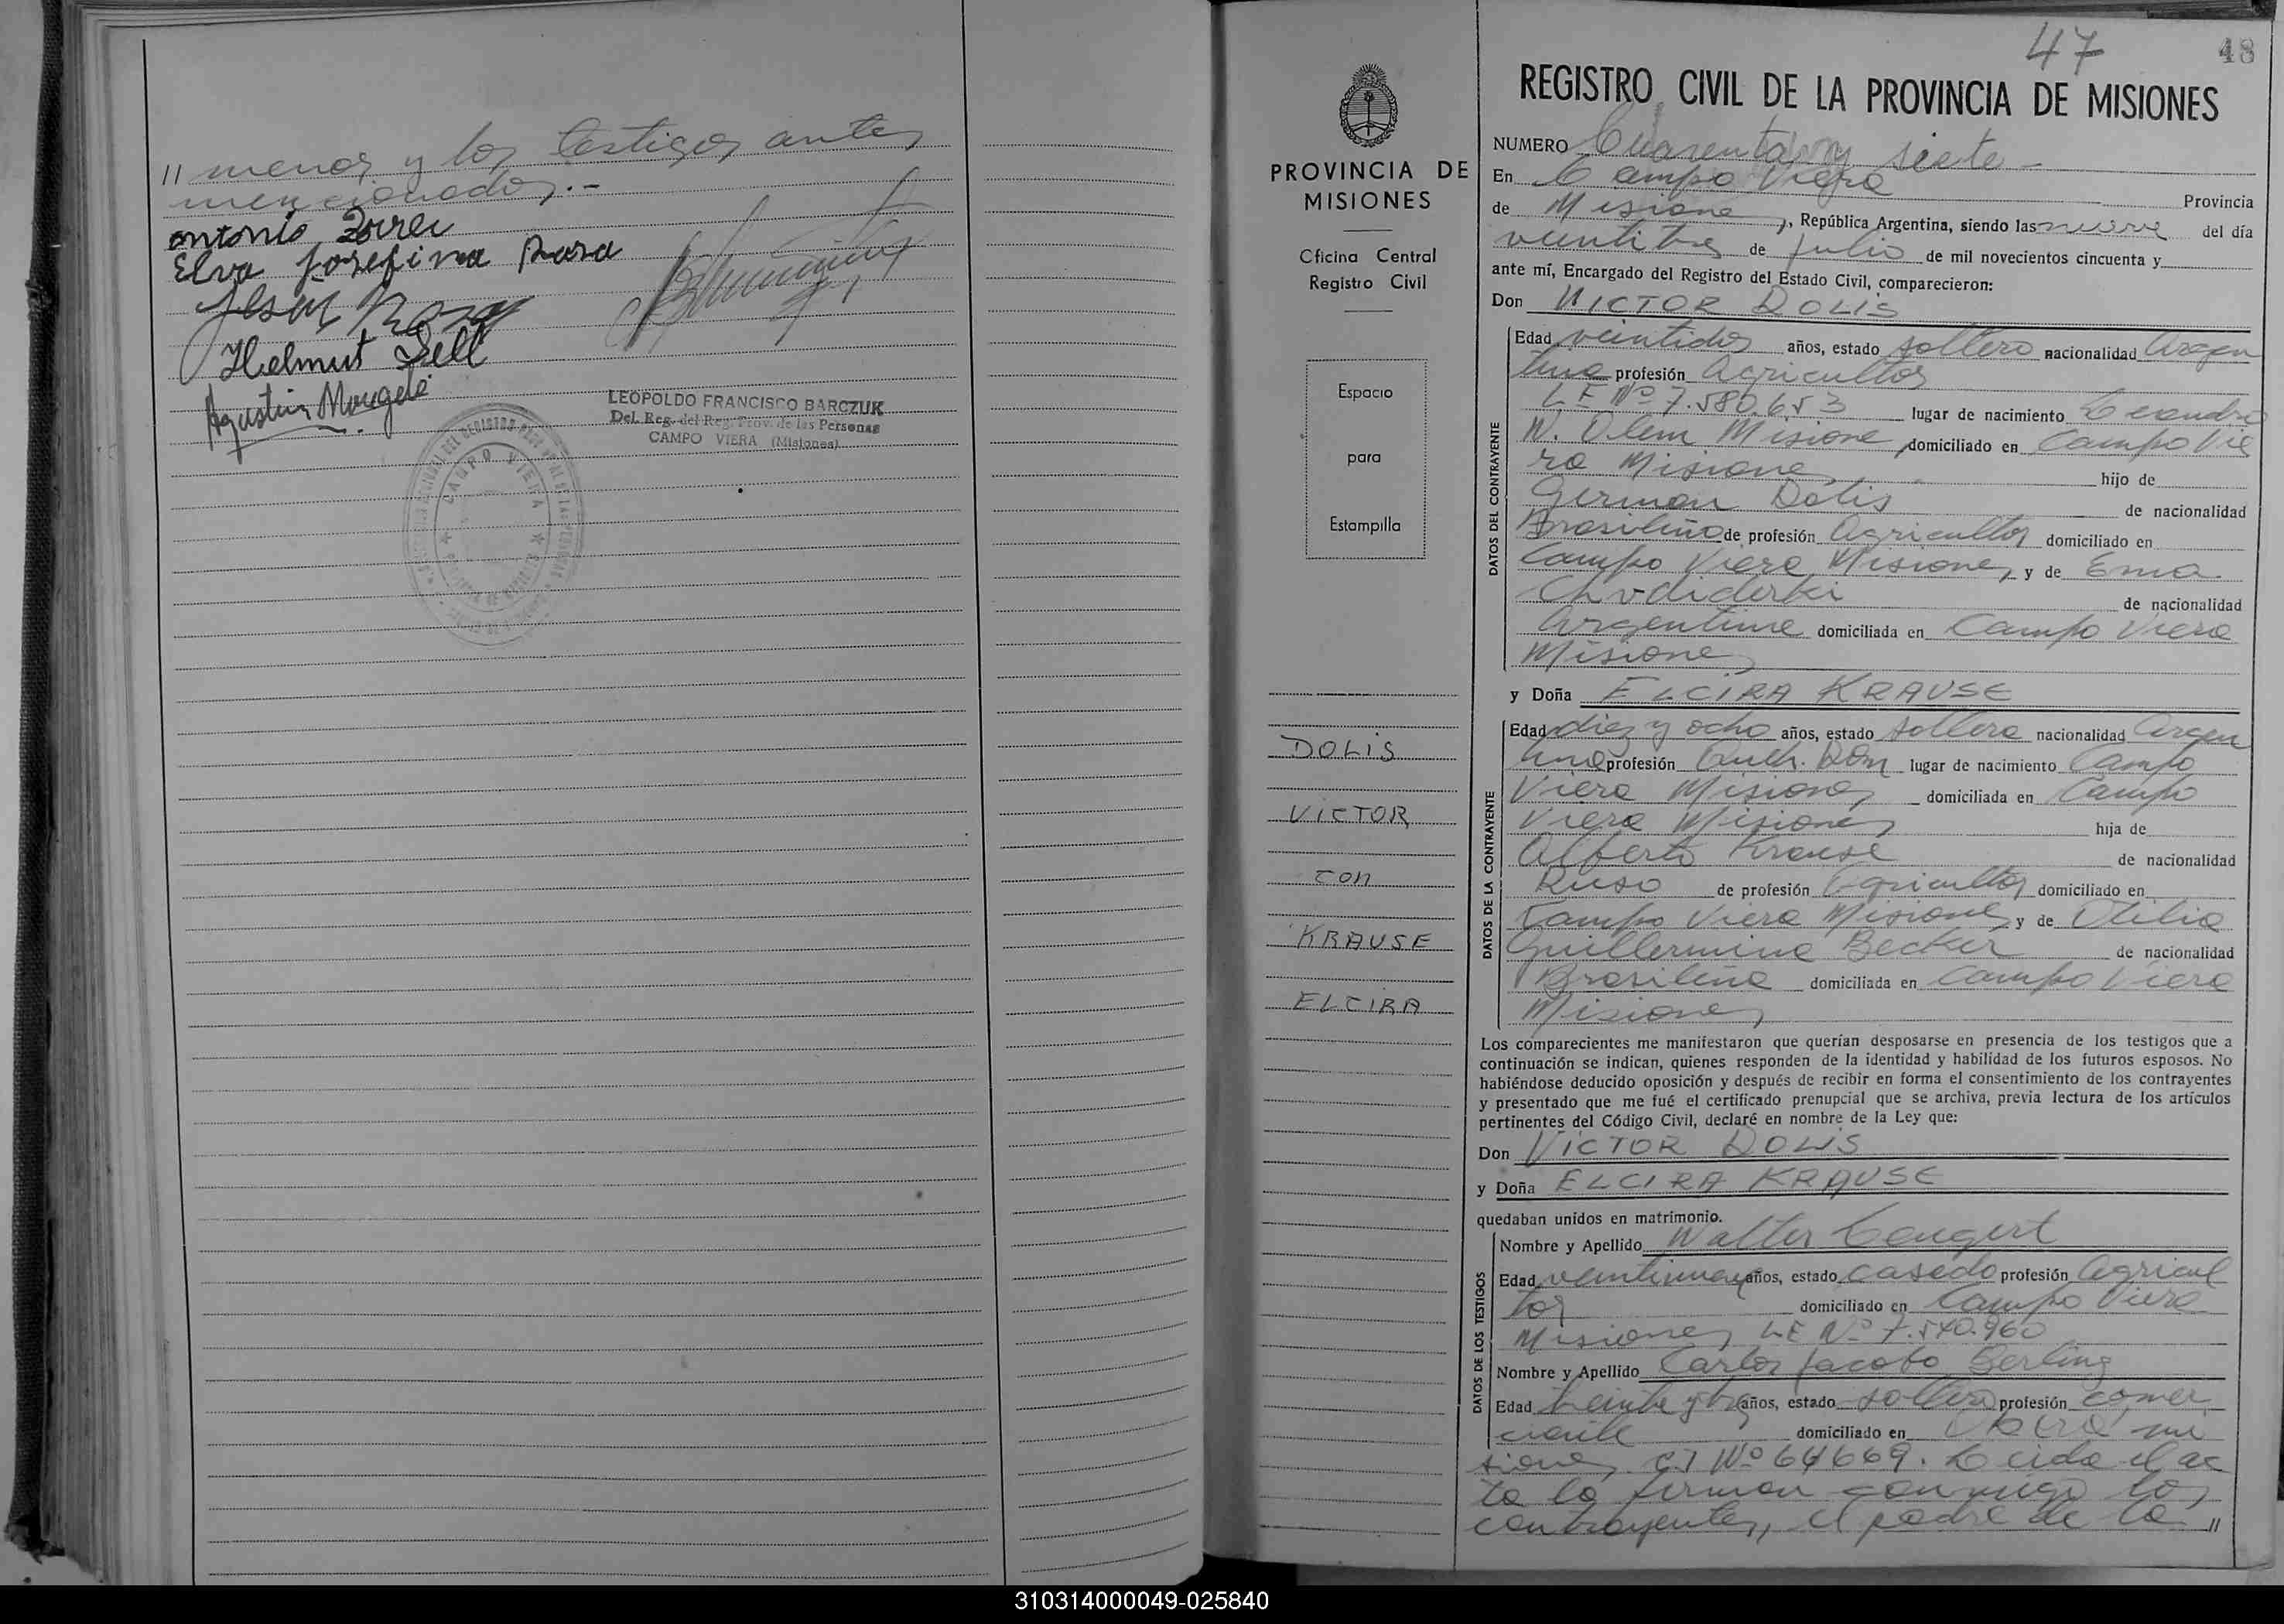 // menor y los testigos antes
mencionados.-
Antonio
Elva Josefina Rosa
Helmut Sell
Agustin
LEOPOLDO FRANCISCO BARCZUK
Del. Reg. del Reg. Prov. de las Personas
CAMPO VIERA (Misiones)
CAMPO VIERA
47
48
PROVINCIA DE
MISIONES
Oficina Central
Registro Civil
Espacio
para
Estampilla
DOLIS
VICTOR
con
KRAUSE
ELCIRA
REGISTRO CIVIL DE LA PROVINCIA DE MISIONES
NUMERO Cuarenta y siete -
En Campo Viera Provincia
de Misiones, República Argentina, siendo las nueve del día
veintitres de julio de mil novecientos cincuenta y
ante mí, Encargado del Registro del Estado Civil, comparecieron:
Don VICTOR DOLIS
DATOS DEL CONTRAYENTE
Edad veintidos años, estado soltero nacionalidad Argen
tina profesión Agricultor
LE Nº 7.580.653 lugar de nacimiento Leandro
N. Alem Misiones domiciliado en Campo Vie
ra Misiones hijo de
German Dolis de nacionalidad
Brasileño de profesión Agricultor domiciliado en
Campo Viera Misiones y de Ema
de nacionalidad
Argentina domiciliada en Campo Viera
Misiones
y Doña ELCIRA KRAUSE
DATOS DE LA CONTRAYENTE
Edad diez y ocho años, estado soltera nacionalidad Argen
tina profesión Dom lugar de nacimiento Campo
Viera Misiones domiciliada en Campo
Viera Misiones hija de
Alberto Krause de nacionalidad
Ruso de profesión Agricultor domiciliado en
Campo Viera Misiones y de Otilia
Guillermina Becker de nacionalidad
Brasileña domiciliada en Campo Viera
Misiones
Los comparecientes me manifestaron que querían desposarse en presencia de los testigos que a
continuación se indican, quienes responden de la identidad y habilidad de los futuros esposos. No
habiéndose deducido oposición y después de recibir en forma el consentimiento de los contrayentes
y presentado que me fué el certificado prenupcial que se archiva, previa lectura de los artículos
pertinentes del Código Civil, declaré en nombre de la Ley que:
Don VICTOR DOLIS
y Doña ELCIRA KRAUSE
quedaban unidos en matrimonio.
DATOS DE LOS TESTIGOS
Nombre y Apellido Walter
Edad veintinueve años, estado casado profesión Agricul
tor domiciliado en Campo Viera
Misiones LE Nº 7.540.960
Nombre y Apellido Carlos Jacobo Berling
Edad treinta y tres años, estado soltero profesión comer
ciante domiciliado en Oberá Mi
siones CI Nº 64669. Leida el ac
ta la firman conmigo los
contrayentes, el padre de la //
310314000049-025840